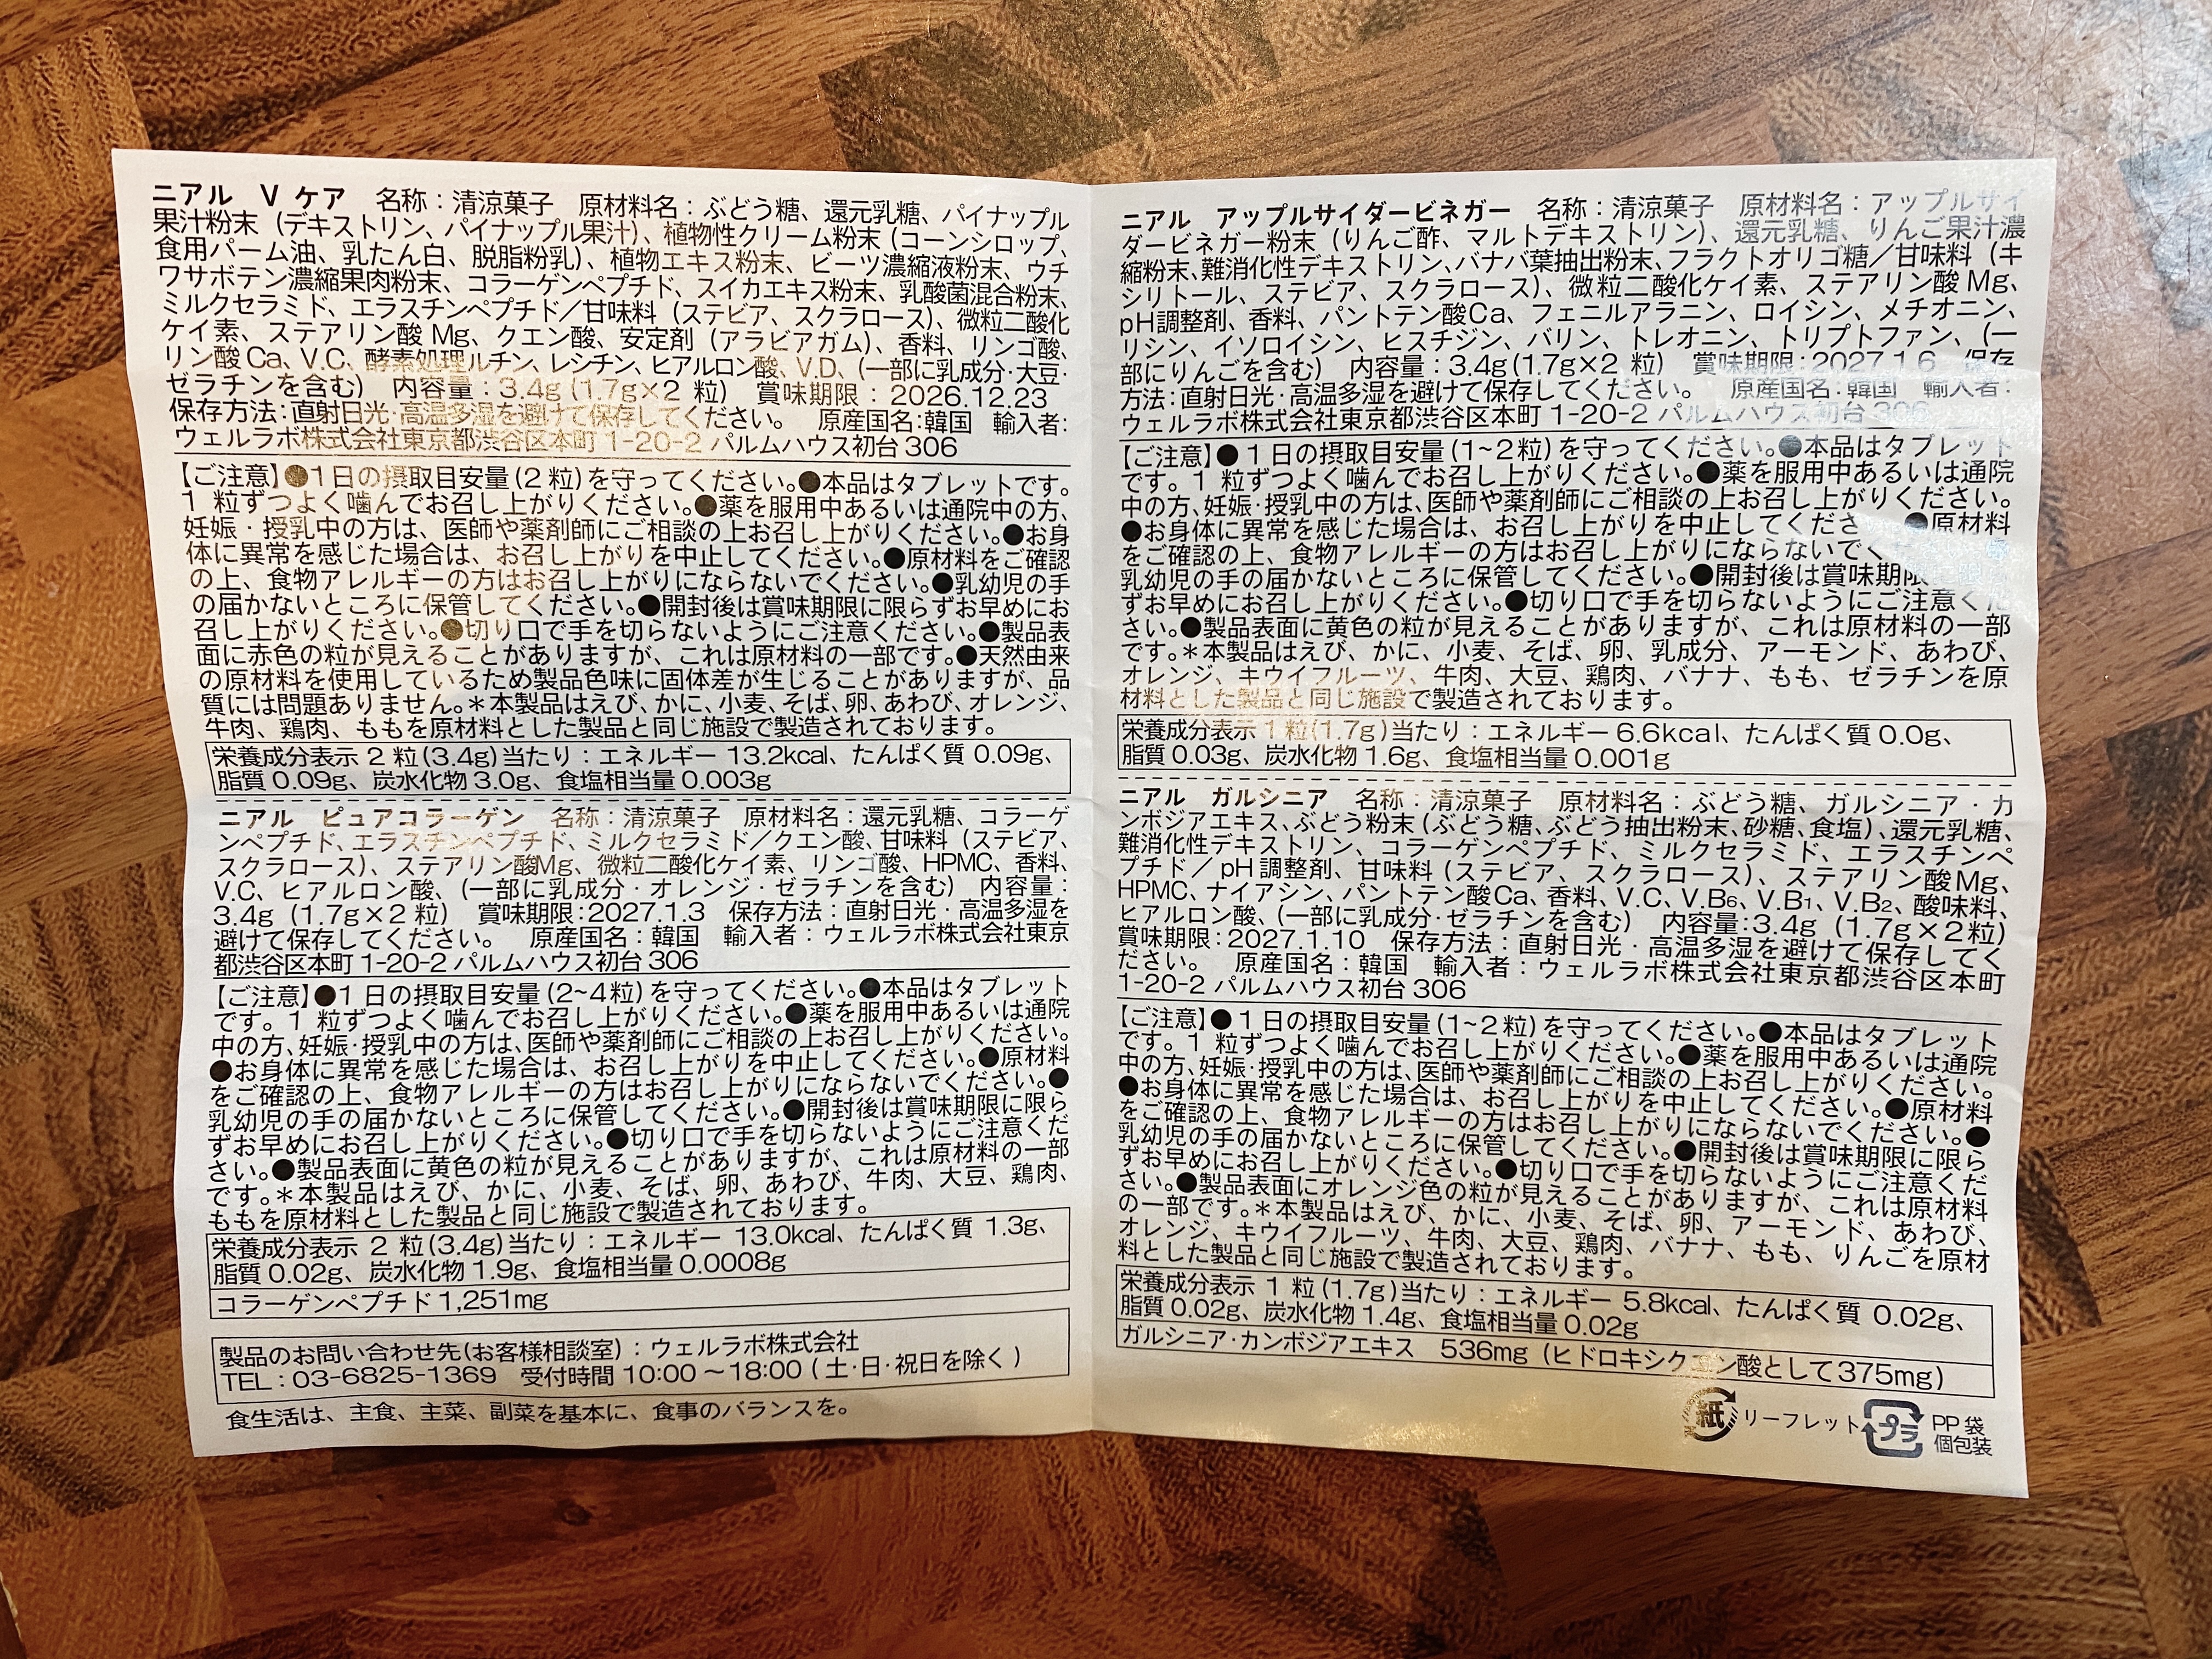 ニアル V ケア 名称：清涼菓子 原材料名：ぶどう糖、還元乳糖、パイナップル
果汁粉末（デキストリン、パイナップル果汁）、植物性クリーム粉末（コーンシロップ、
食用パーム油、乳たん白、脱脂粉乳）、植物エキス粉末、ビーツ濃縮液粉末、ウチ
ワサボテン濃縮果肉粉末、コラーゲンペプチド、スイカエキス粉末、乳酸菌混合粉末、
ミルクセラミド、エラスチンペプチド／甘味料（ステビア、スクラロース）、微粒二酸化
ケイ素、ステアリン酸 Mg、クエン酸、安定剤（アラビアガム）、香料、リンゴ酸、
リン酸 Ca、V.C、酵素処理ルチン、レシチン、ヒアルロン酸、V.D、（一部に乳成分・大豆・
ゼラチンを含む） 内容量：3.4g (1.7g×2 粒) 賞味期限：2026.12.23
保存方法：直射日光・高温多湿を避けて保存してください。 原産国名：韓国 輸入者：
ウェルラボ株式会社東京都渋谷区本町 1-20-2 パルムハウス初台 306
【ご注意】●1日の摂取目安量(2 粒)を守ってください。●本品はタブレットです。
1 粒ずつよく噛んでお召し上がりください。●薬を服用中あるいは通院中の方、
妊娠・授乳中の方は、医師や薬剤師にご相談の上お召し上がりください。●お身
体に異常を感じた場合は、お召し上がりを中止してください。●原材料をご確認
の上、食物アレルギーの方はお召し上がりにならないでください。●乳幼児の手
の届かないところに保管してください。●開封後は賞味期限に限らずお早めにお
召し上がりください。●切り口で手を切らないようにご注意ください。●製品表
面に赤色の粒が見えることがありますが、これは原材料の一部です。●天然由来
の原材料を使用しているため製品色味に固体差が生じることがありますが、品
質には問題ありません。＊本製品はえび、かに、小麦、そば、卵、あわび、オレンジ、
牛肉、鶏肉、ももを原材料とした製品と同じ施設で製造されております。
栄養成分表示 2 粒(3.4g)当たり：エネルギー 13.2kcal、たんぱく質 0.09g、
脂質 0.09g、炭水化物 3.0g、食塩相当量 0.003g
ニアル ピュアコラーゲン 名称：清涼菓子 原材料名：還元乳糖、コラーゲ
ンペプチド、エラスチンペプチド、ミルクセラミド／クエン酸、甘味料（ステビア、
スクラロース）、ステアリン酸Mg、微粒二酸化ケイ素、リンゴ酸、HPMC、香料、
V.C、ヒアルロン酸、（一部に乳成分・オレンジ・ゼラチンを含む） 内容量：
3.4g（1.7g×2 粒） 賞味期限：2027.1.3 保存方法：直射日光・高温多湿を
避けて保存してください。 原産国名：韓国 輸入者：ウェルラボ株式会社東京
都渋谷区本町 1-20-2 パルムハウス初台 306
【ご注意】●1日の摂取目安量(2~4粒)を守ってください。●本品はタブレット
です。1 粒ずつよく噛んでお召し上がりください。●薬を服用中あるいは通院
中の方、妊娠・授乳中の方は、医師や薬剤師にご相談の上お召し上がりください。
●お身体に異常を感じた場合は、お召し上がりを中止してください。●原材料
をご確認の上、食物アレルギーの方はお召し上がりにならないでください。●
乳幼児の手の届かないところに保管してください。●開封後は賞味期限に限ら
ずお早めにお召し上がりください。●切り口で手を切らないようにご注意くだ
さい。●製品表面に黄色の粒が見えることがありますが、これは原材料の一部
です。＊本製品はえび、かに、小麦、そば、卵、あわび、牛肉、大豆、鶏肉、
ももを原材料とした製品と同じ施設で製造されております。
栄養成分表示 2 粒(3.4g)当たり：エネルギー 13.0kcal、たんぱく質 1.3g、
脂質 0.02g、炭水化物 1.9g、食塩相当量 0.0008g
コラーゲンペプチド 1,251mg
製品のお問い合わせ先(お客様相談室)：ウェルラボ株式会社
TEL：03-6825-1369 受付時間 10:00 〜18:00 (土・日・祝日を除く)
食生活は、主食、主菜、副菜を基本に、食事のバランスを。
ニアル アップルサイダービネガー 名称：清涼菓子 原材料名：アップルサイ
ダービネガー粉末（りんご酢、マルトデキストリン）、還元乳糖、りんご果汁濃
縮粉末、難消化性デキストリン、バナバ葉抽出粉末、フラクトオリゴ糖／甘味料（キ
シリトール、ステビア、スクラロース）、微粒二酸化ケイ素、ステアリン酸 Mg、
pH調整剤、香料、パントテン酸Ca、フェニルアラニン、ロイシン、メチオニン、
リシン、イソロイシン、ヒスチジン、バリン、トレオニン、トリプトファン、（一
部にりんごを含む） 内容量：3.4g(1.7g×2 粒) 賞味期限：2027.1.6 保存
方法：直射日光・高温多湿を避けて保存してください。 原産国名：韓国 輸入者：
ウェルラボ株式会社東京都渋谷区本町 1-20-2 パルムハウス初台 306
【ご注意】●1日の摂取目安量(1~2粒)を守ってください。●本品はタブレット
です。1 粒ずつよく噛んでお召し上がりください。●薬を服用中あるいは通院
中の方、妊娠・授乳中の方は、医師や薬剤師にご相談の上お召し上がりください。
●お身体に異常を感じた場合は、お召し上がりを中止してくださ ●原材料
をご確認の上、食物アレルギーの方はお召し上がりにならないでく
乳幼児の手の届かないところに保管してください。●開封後は賞味期限
ずお早めにお召し上がりください。●切り口で手を切らないようにご注意くだ
さい。●製品表面に黄色の粒が見えることがありますが、これは原材料の一部
です。＊本製品はえび、かに、小麦、そば、卵、乳成分、アーモンド、あわび、
オレンジ、キウイフルーツ、牛肉、大豆、鶏肉、バナナ、もも、ゼラチンを原
材料とした製品と同じ施設で製造されております。
栄養成分表示 1 粒(1.7g)当たり：エネルギー 6.6kcal、たんぱく質 0.0g、
脂質 0.03g、炭水化物 1.6g、食塩相当量 0.001g
ニアル ガルシニア 名称：清涼菓子 原材料名：ぶどう糖、ガルシニア・カ
ンボジアエキス、ぶどう粉末（ぶどう糖、ぶどう抽出粉末、砂糖、食塩）、還元乳糖、
難消化性デキストリン、コラーゲンペプチド、ミルクセラミド、エラスチンペ
プチド／pH調整剤、甘味料（ステビア、スクラロース）、ステアリン酸Mg、
HPMC、ナイアシン、パントテン酸Ca、香料、V.C、V.B6、V.B1、V.B2、酸味料、
ヒアルロン酸、（一部に乳成分・ゼラチンを含む） 内容量：3.4g（1.7g×2粒）
賞味期限：2027.1.10 保存方法：直射日光・高温多湿を避けて保存してく
ださい。 原産国名：韓国 輸入者：ウェルラボ株式会社東京都渋谷区本町
1-20-2 パルムハウス初台 306
【ご注意】●1日の摂取目安量(1~2粒)を守ってください。●本品はタブレット
です。1 粒ずつよく噛んでお召し上がりください。●薬を服用中あるいは通院
中の方、妊娠・授乳中の方は、医師や薬剤師にご相談の上お召し上がりください。
●お身体に異常を感じた場合は、お召し上がりを中止してください。●原材料
をご確認の上、食物アレルギーの方はお召し上がりにならないでください。●
乳幼児の手の届かないところに保管してください。●開封後は賞味期限に限ら
ずお早めにお召し上がりください。●切り口で手を切らないようにご注意くだ
さい。●製品表面にオレンジ色の粒が見えることがありますが、これは原材料
の一部です。＊本製品はえび、かに、小麦、そば、卵、アーモンド、あわび、
オレンジ、キウイフルーツ、牛肉、大豆、鶏肉、バナナ、もも、りんごを原材
料とした製品と同じ施設で製造されております。
栄養成分表示 1 粒(1.7g)当たり：エネルギー 5.8kcal、たんぱく質 0.02g、
脂質 0.02g、炭水化物 1.4g、食塩相当量 0.02g
ガルシニア・カンボジアエキス 536mg（ヒドロキシクエン酸として375mg）
紙 リーフレット プラ PP 袋
個包装